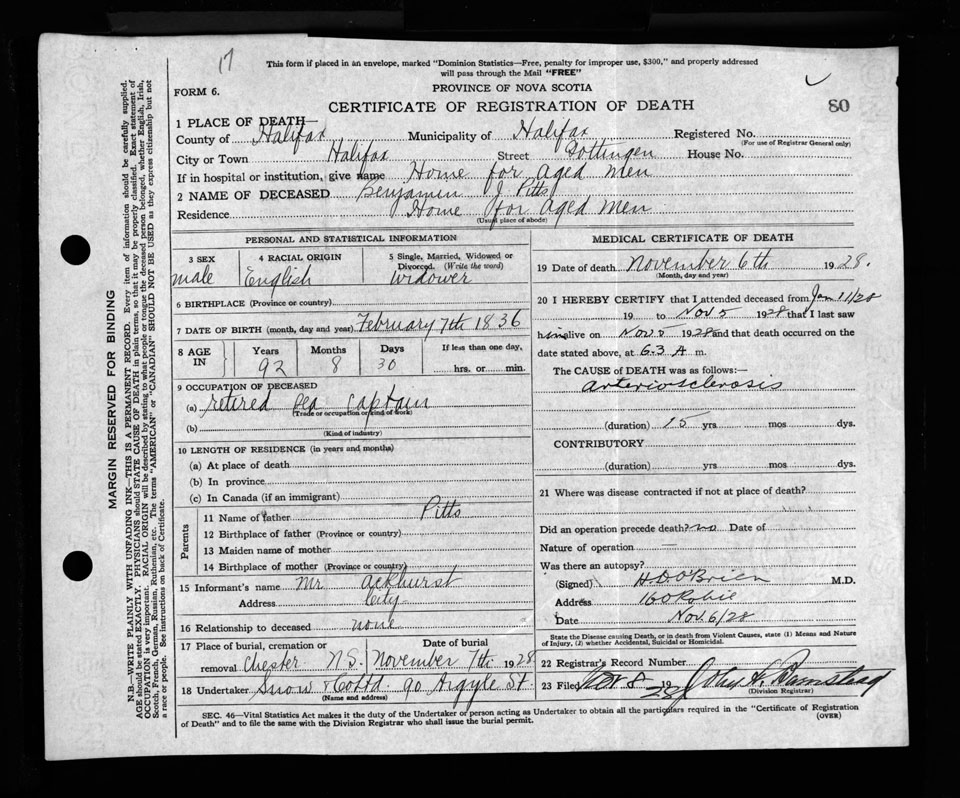 17
This form if placed in an envelope, marked "Dominion Statistics—Free, penalty for improper use, $300," and properly addressed
will pass through the Mail "FREE"
FORM 6.
PROVINCE OF NOVA SCOTIA
80
CERTIFICATE OF REGISTRATION OF DEATH
1 PLACE OF DEATH—
County of Halifax Municipality of Halifax Registered No.
(For use of Registrar General only)
City or Town Halifax Street Gottingen House No.
If in hospital or institution, give name Home for Aged Men
2 NAME OF DECEASED Benjamin J. Pitts
Residence Home for Aged Men
(Usual place of abode)
PERSONAL AND STATISTICAL INFORMATION
3 SEX
male
4 RACIAL ORIGIN
English
5 Single, Married, Widowed or
Divorced. (Write the word)
Widower
6 BIRTHPLACE (Province or country)
7 DATE OF BIRTH (month, day and year) February 7th 1836
8 AGE IN
Years Months Days If less than one day,
92 8 30 hrs. or min.
9 OCCUPATION OF DECEASED
(a) retired Sea Captain
(Trade or occupation or kind of work)
(b)
(Kind of industry)
10 LENGTH OF RESIDENCE (in years and months)
(a) At place of death
(b) In province
(c) In Canada (if an immigrant)
Parents
11 Name of father Pitts
12 Birthplace of father (Province or country)
13 Maiden name of mother
14 Birthplace of mother (Province or country)
15 Informant's name Mr Ackhurst
Address City
16 Relationship to deceased none
17 Place of burial, cremation or Date of burial
removal Chester N.S. November 7th 1928
18 Undertaker Snow & Co Ltd 90 Argyle St.
(Name and address)
MEDICAL CERTIFICATE OF DEATH
19 Date of death November 6th 1928.
(Month, day and year)
20 I HEREBY CERTIFY that I attended deceased from Jan 11/28
19 to Nov 5 1928 that I last saw
him alive on Nov 5 1928 and that death occurred on the
date stated above, at 6.3 A m.
The CAUSE of DEATH was as follows:—
arteriosclerosis
(duration) 15 yrs mos dys.
CONTRIBUTORY
(duration) yrs mos dys.
21 Where was disease contracted if not at place of death?
Did an operation precede death? no Date of
Nature of operation —
Was there an autopsy?
(Signed) H D O'Brien M.D.
Address 160 Robie
Date Nov. 6/28
State the Disease causing Death, or in death from Violent Causes, state (1) Means and Nature
of Injury, (2) whether Accidental, Suicidal or Homicidal.
22 Registrar's Record Number
23 Filed Nov 8 1928 John A.
(Division Registrar)
SEC. 46—Vital Statistics Act makes it the duty of the Undertaker or person acting as Undertaker to obtain all the particulars required in the "Certificate of Registration
of Death" and to file the same with the Division Registrar who shall issue the burial permit.
(OVER)
MARGIN RESERVED FOR BINDING
N.B.—WRITE PLAINLY WITH UNFADING INK—THIS IS A PERMANENT RECORD. Every item of information should be carefully supplied.
AGE should be stated EXACTLY. PHYSICIANS should STATE CAUSE OF DEATH in plain terms, so that it may be properly classified. Exact statement of
OCCUPATION is very important. RACIAL ORIGIN will be described by stating to what people or tongue the deceased person belonged, whether English, Irish,
Scotch, French, German, Russian, Ruthenian, etc. The terms "AMERICAN" or "CANADIAN" SHOULD NOT BE USED as they express citizenship but not
a race or people. See instructions on back of Certificate.